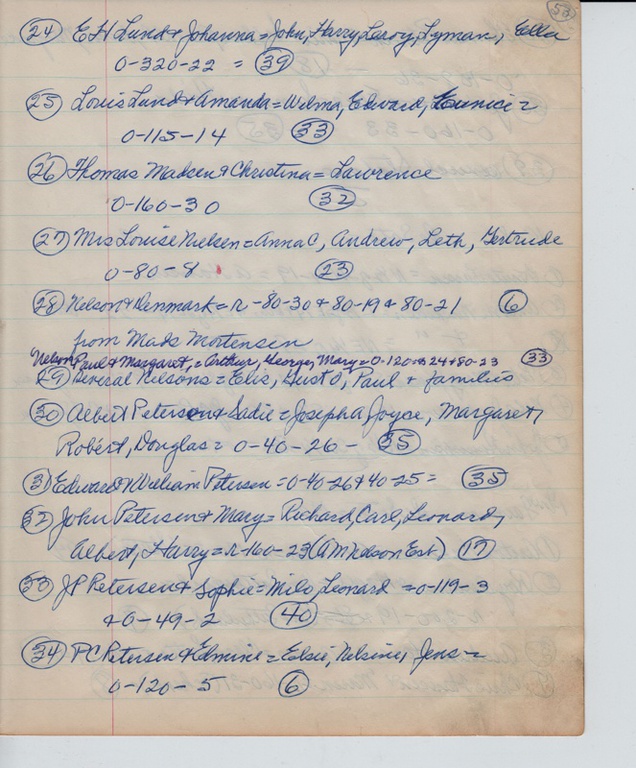 52
24 E H Lund & Johanna = John, Harry, Leroy, Lyman, Ella
0-320-22 = 39
25 Louis Lund & Amanda = Wilma, Edward, Eunice =
0-115-14 33
26 Thomas Madsen & Christina = Lawrence
0-160-30 32
27 Mrs Louise Nielsen = Anna C, Andrew, Leth, Gertrude
0-80-8 23
28 Nelson & Denmark = r-80-30 & 80-19 & 80-21 6
from Mads Mortensen
Nelson Paul & Margaret, = Arthur, George, Mary = 0-120-24 & 80-23 33
29 Several Nelsons = Elis, Gust O, Paul & families
30 Albert Petersen & Sadie = Joseph A, Joyce, Margaret,
Robert, Douglas = 0-40-26 - 35
31 Edward & William Petersen = 0-40-26 & 40-25 = 35
32 John Petersen & Mary = Richard, Carl, Leonard,
Albert, Harry = r-160-23 (A M Nelson Est) 17
33 J P Petersen & Sophie = Milo, Leonard = 0-119-3
& 0-49-2 40
34 P C Petersen & Edmine = Elsie, Nelsine, Jens =
0-120-5 6